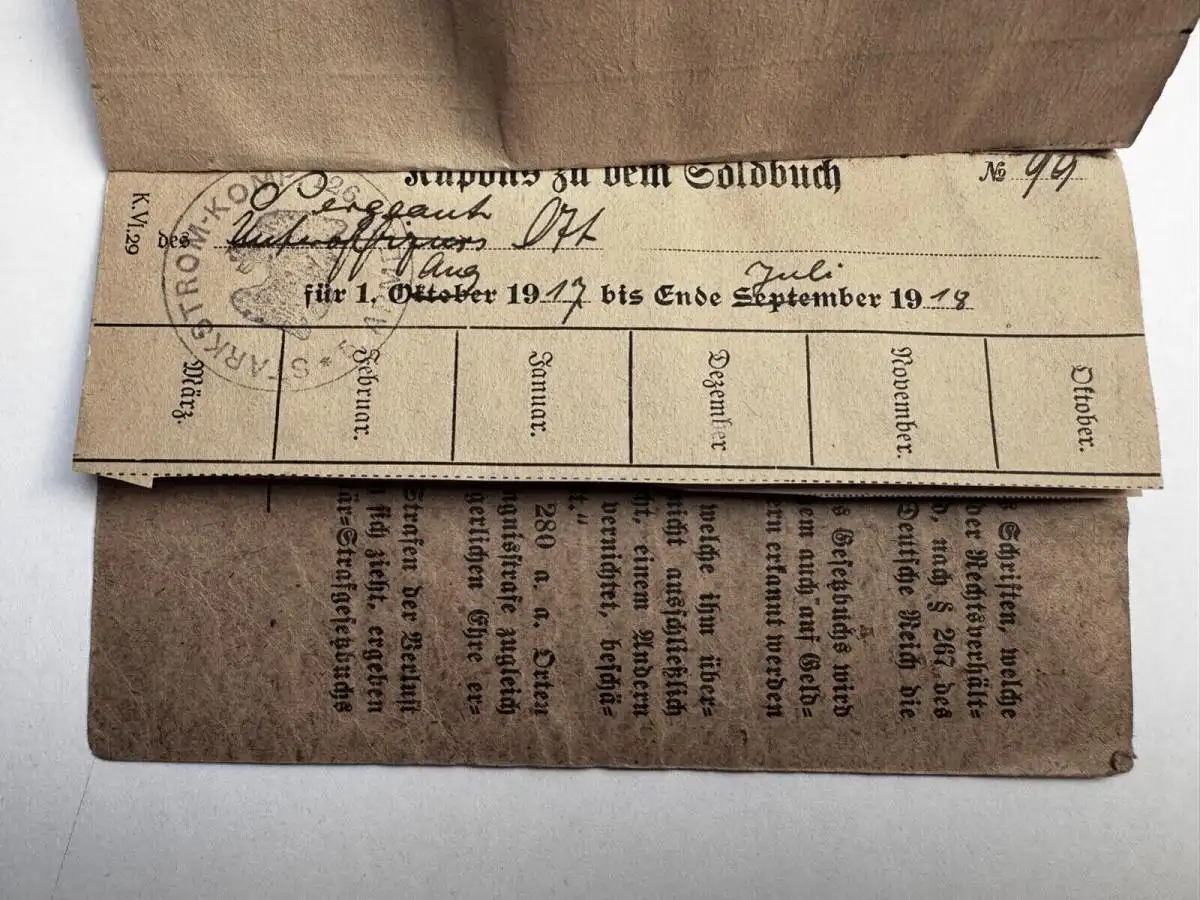 Kupons zu dem Soldbuch № 99
Sergeant
des Unteroffiziers Ott
Aug Juli
für 1. Oktober 1917 bis Ende September 1918
K. VI. 29
STARKSTROM-KOMP 126
März.
Februar.
Januar.
Dezember
November.
Oktober.
Schriften, welche
der Rechtsverhält-
nach § 267 des
Deutsche Reich die
Gesetzbuchs wird
auch auf Geld-
ern erkannt werden
welche ihm über-
nicht ausschließlich
ht, einem Andern
vernichtet, beschä-
t."
280 a. a. Orten
ngnisstrafe zugleich
gerlichen Ehre er-
Strafen der Verlust
sich zieht, ergeben
är-Strafgesetzbuchs